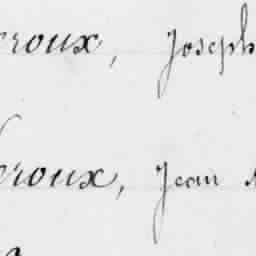 roux, Joseph
eroux, Jean